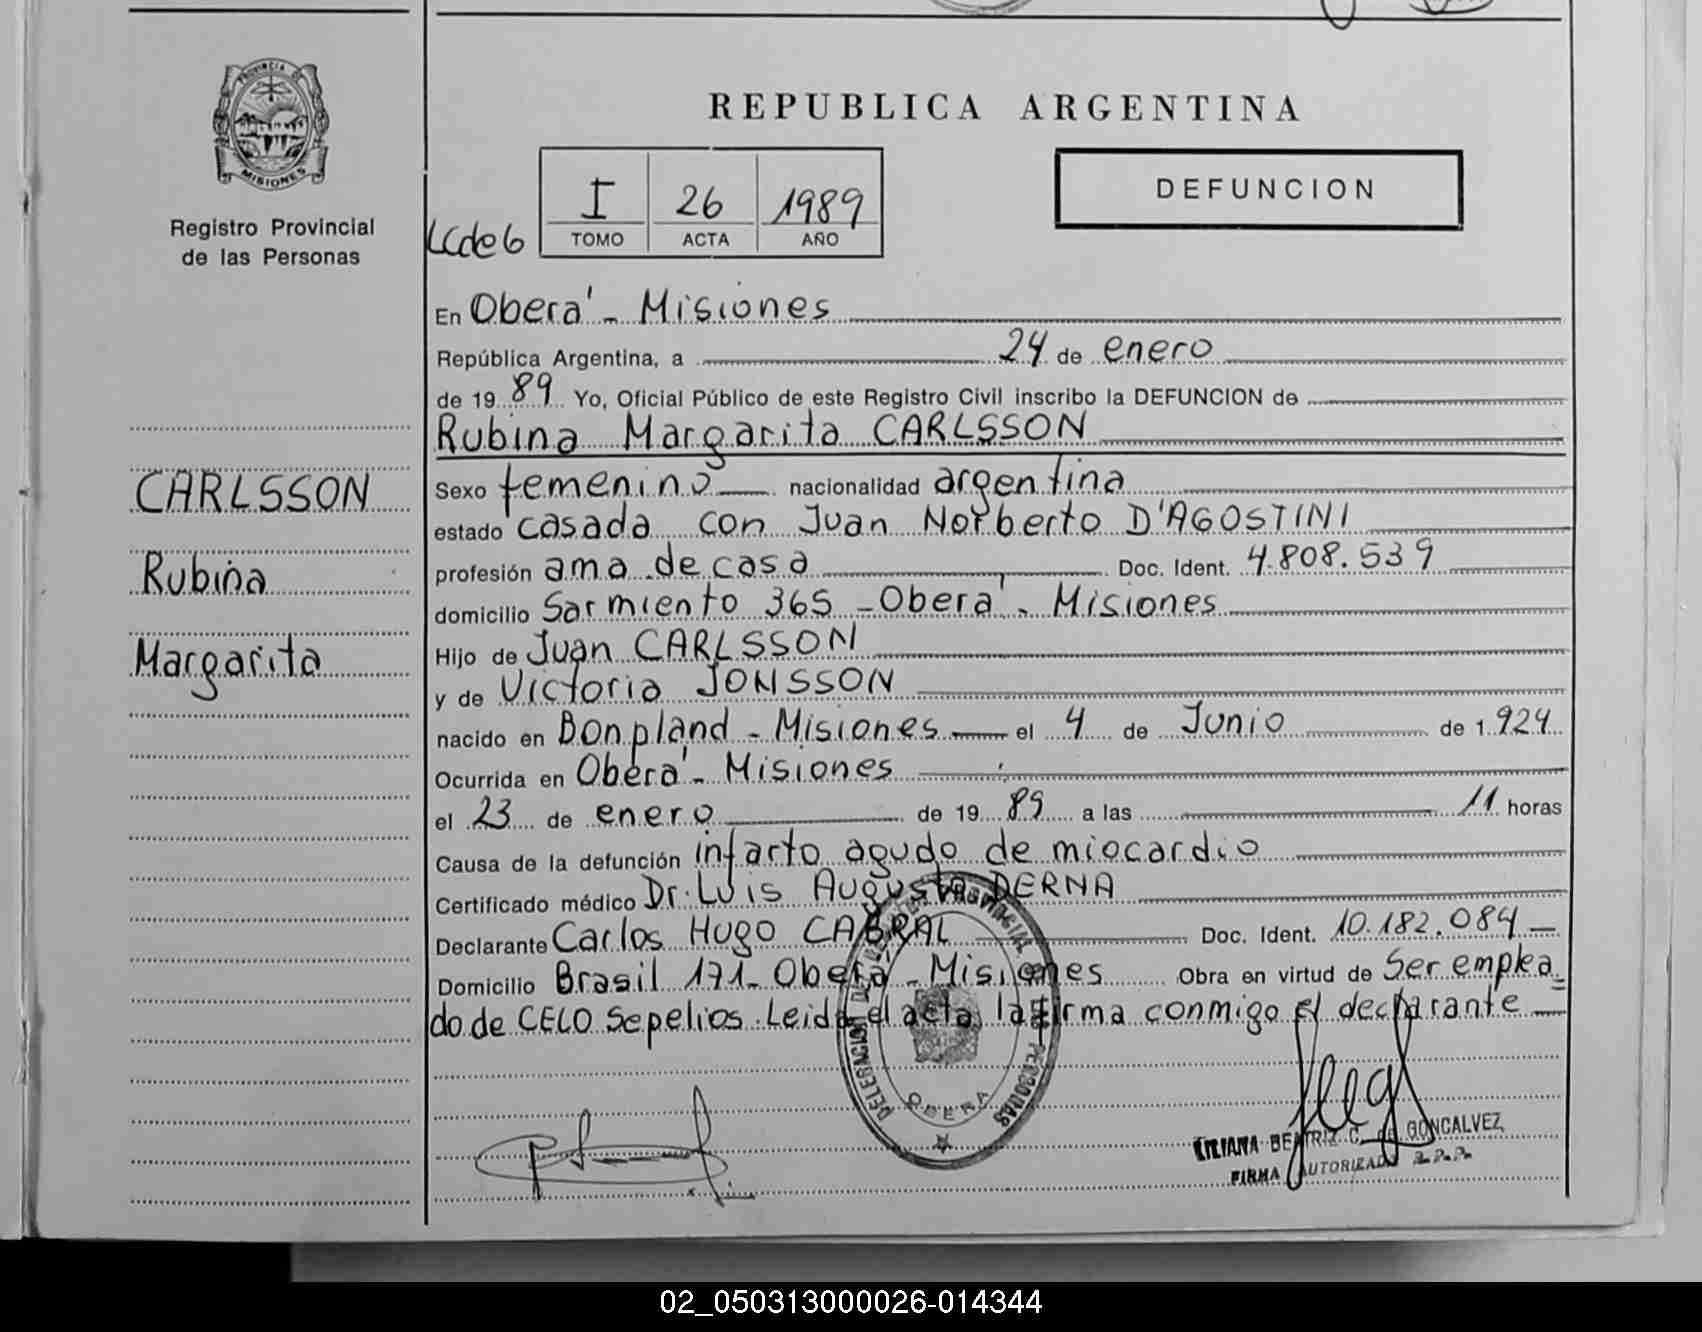 PROVINCIA DE
MISIONES
Registro Provincial
de las Personas
CARLSSON
Rubina
Margarita
REPUBLICA ARGENTINA
I 26 1989
TOMO ACTA AÑO
DEFUNCION
En Oberá - Misiones
República Argentina, a 24 de enero
de 19 89 Yo, Oficial Público de este Registro Civil inscribo la DEFUNCION de
Rubina Margarita CARLSSON
Sexo femenino nacionalidad argentina
estado casada con Juan Norberto D'AGOSTINI
profesión ama de casa Doc. Ident. 4.808.539
domicilio Sarmiento 365 - Oberá - Misiones
Hijo de Juan CARLSSON
y de Victoria JONSSON
nacido en Bonpland - Misiones el 4 de Junio de 1.924
Ocurrida en Oberá - Misiones
el 23 de enero de 19 89 a las 11 horas
Causa de la defunción infarto agudo de miocardio
Certificado médico Dr. Luis Augusto DERNA
Declarante Carlos Hugo CABRAL Doc. Ident. 10.182.084
Domicilio Brasil 171 - Oberá - Misiones Obra en virtud de Ser emplea
do de CELO Sepelios. Leida el acta, la firma conmigo el declarante
DELEGACION PROVINCIAL PERSONAS
OBERA
LILIANA BEATRIZ C. de GONCALVEZ
FIRMA AUTORIZADA R.P.P.
02_050313000026-014344